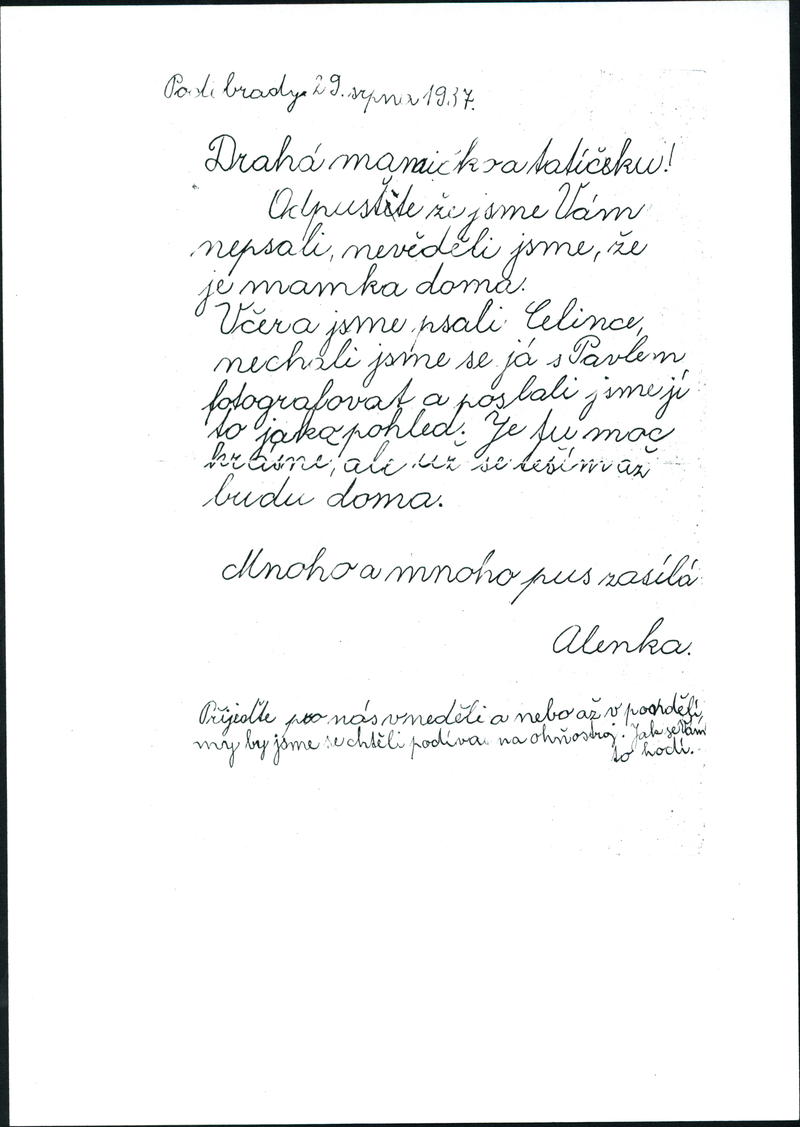 Poděbrady 29. srpna 1937.
Drahá mamičko a tatíčku!
Odpusťte že jsme Vám
nepsali, nevěděli jsme, že
je mamka doma.
Včera jsme psali Celince,
nechali jsme se já s Pavlem
fotografovat a poslali jsme jí
to jako pohled. Je tu moc
krásne, ale už se teším až
budu doma.
Mnoho a mnoho pus zasílá
Alenka.
Přijeďte pro nás v neděli a nebo až v pondělí,
my by jsme se chtěli podívat na ohňostroj. Jak se Vám
to hodí.